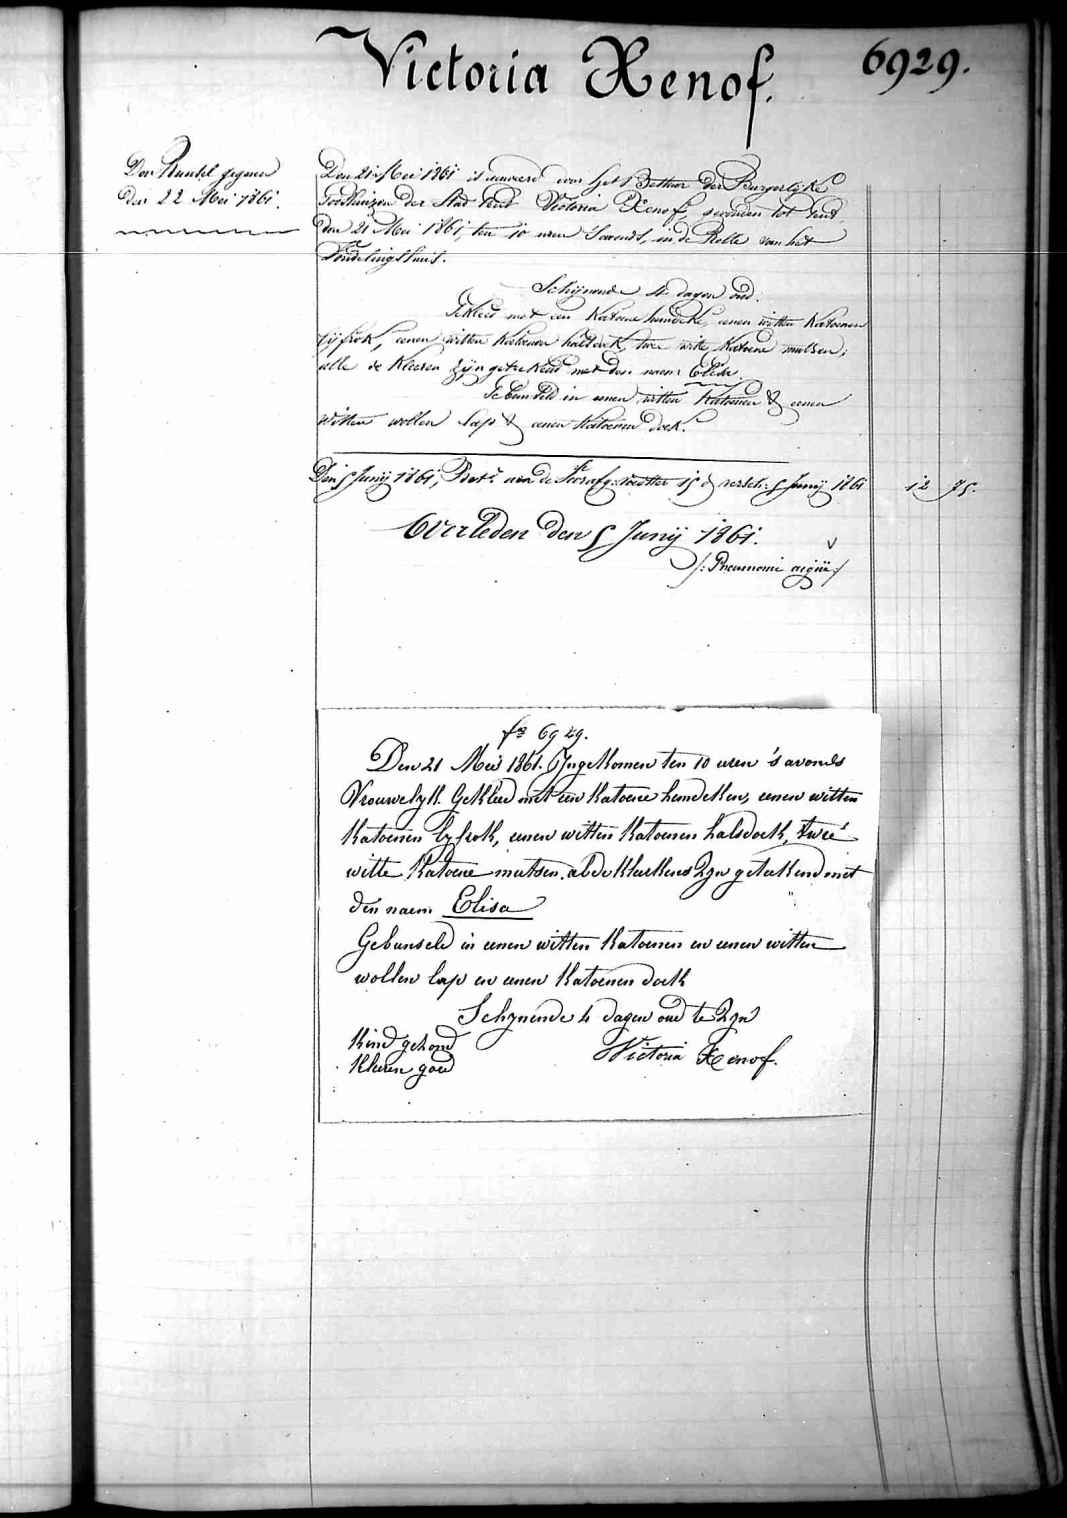 Victoria Xenof.
6929.
Den
den 22 Mei 1861.
Den 21 Mei 1861 is aenveerd door het Bestuur der Burgerlyke
Godshuizen der Stad Gend Victoria Xenof, gevonden tot Gend,
den 21 Mei 1861, ten 10 uren 's avonds, in de Rolle van het
Vondelingshuis.
Schijnende 4 dagen oud.
Gekleed met een Katoene hemdeke, eenen witten Katoenen
lijfrok, eenen witten Katoenen halsdoek, twee witte Katoene mutsen;
alle de kleeren zijn geteekend met den naem: Elisa.
Gebunseld in eenen witten Katoenen & eenen
Witten wollen lap & eenen Katoenen doek.
Den 5 Junij 1861, aan de 15 d 5 Junij 1861
12 75.
Overleden den 5 Junij 1861.
/: Pneumonie aigüe :/
f° 6929.
Den 21 Mei 1861. Ingekomen ten 10 uren 's avonds
Vrouwelyk. Gekleed met een Katoene hemdeken, eenen witten
Katoenen lyfrok, eenen witten Katoenen halsdoek, twee
witte Katoene mutsen. al de kleekens zyn geteekend met
den naem Elisa
Gebunseld in eenen witten Katoenen en eenen witten
wollen lap en eenen Katoenen doek
Schynende 4 dagen oud te zyn
Kind gezond
Victoria Xenof.
Kleeren goed